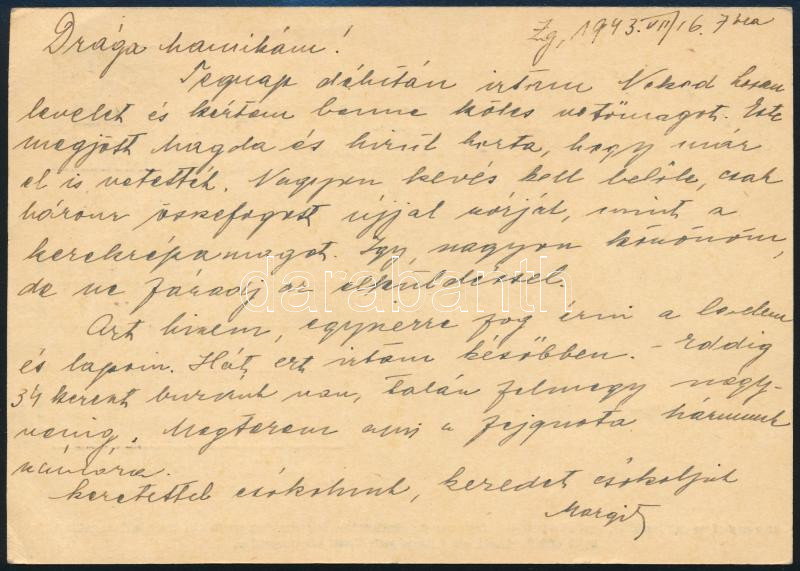 Zg, 1943. VII/16. 7 óra
Drága Mamikám!
Tegnap délután irtam Neked hosszú
levelet és kértem benne köles vetőmagot. Este
megjött Magda és hirül hozta, hogy már
el is vetették. Nagyon kevés kell belőle, csak
három összefogott ujjal szórják, mint a
kerekrépamagot. Így, nagyon köszönöm,
de ne fáradj az elküldéssel.
darabanth.com
Azt hiszem, egyszerre fog érni a levelem
és lapom. Hát, ezt irtam később. - Eddig
34 kereszt buzánk van, talán felmegy negy-
venig. Megterem ami a fejquota hármunk
számára.
Szeretettel csókolunk, kezedet csókoljuk
Margit